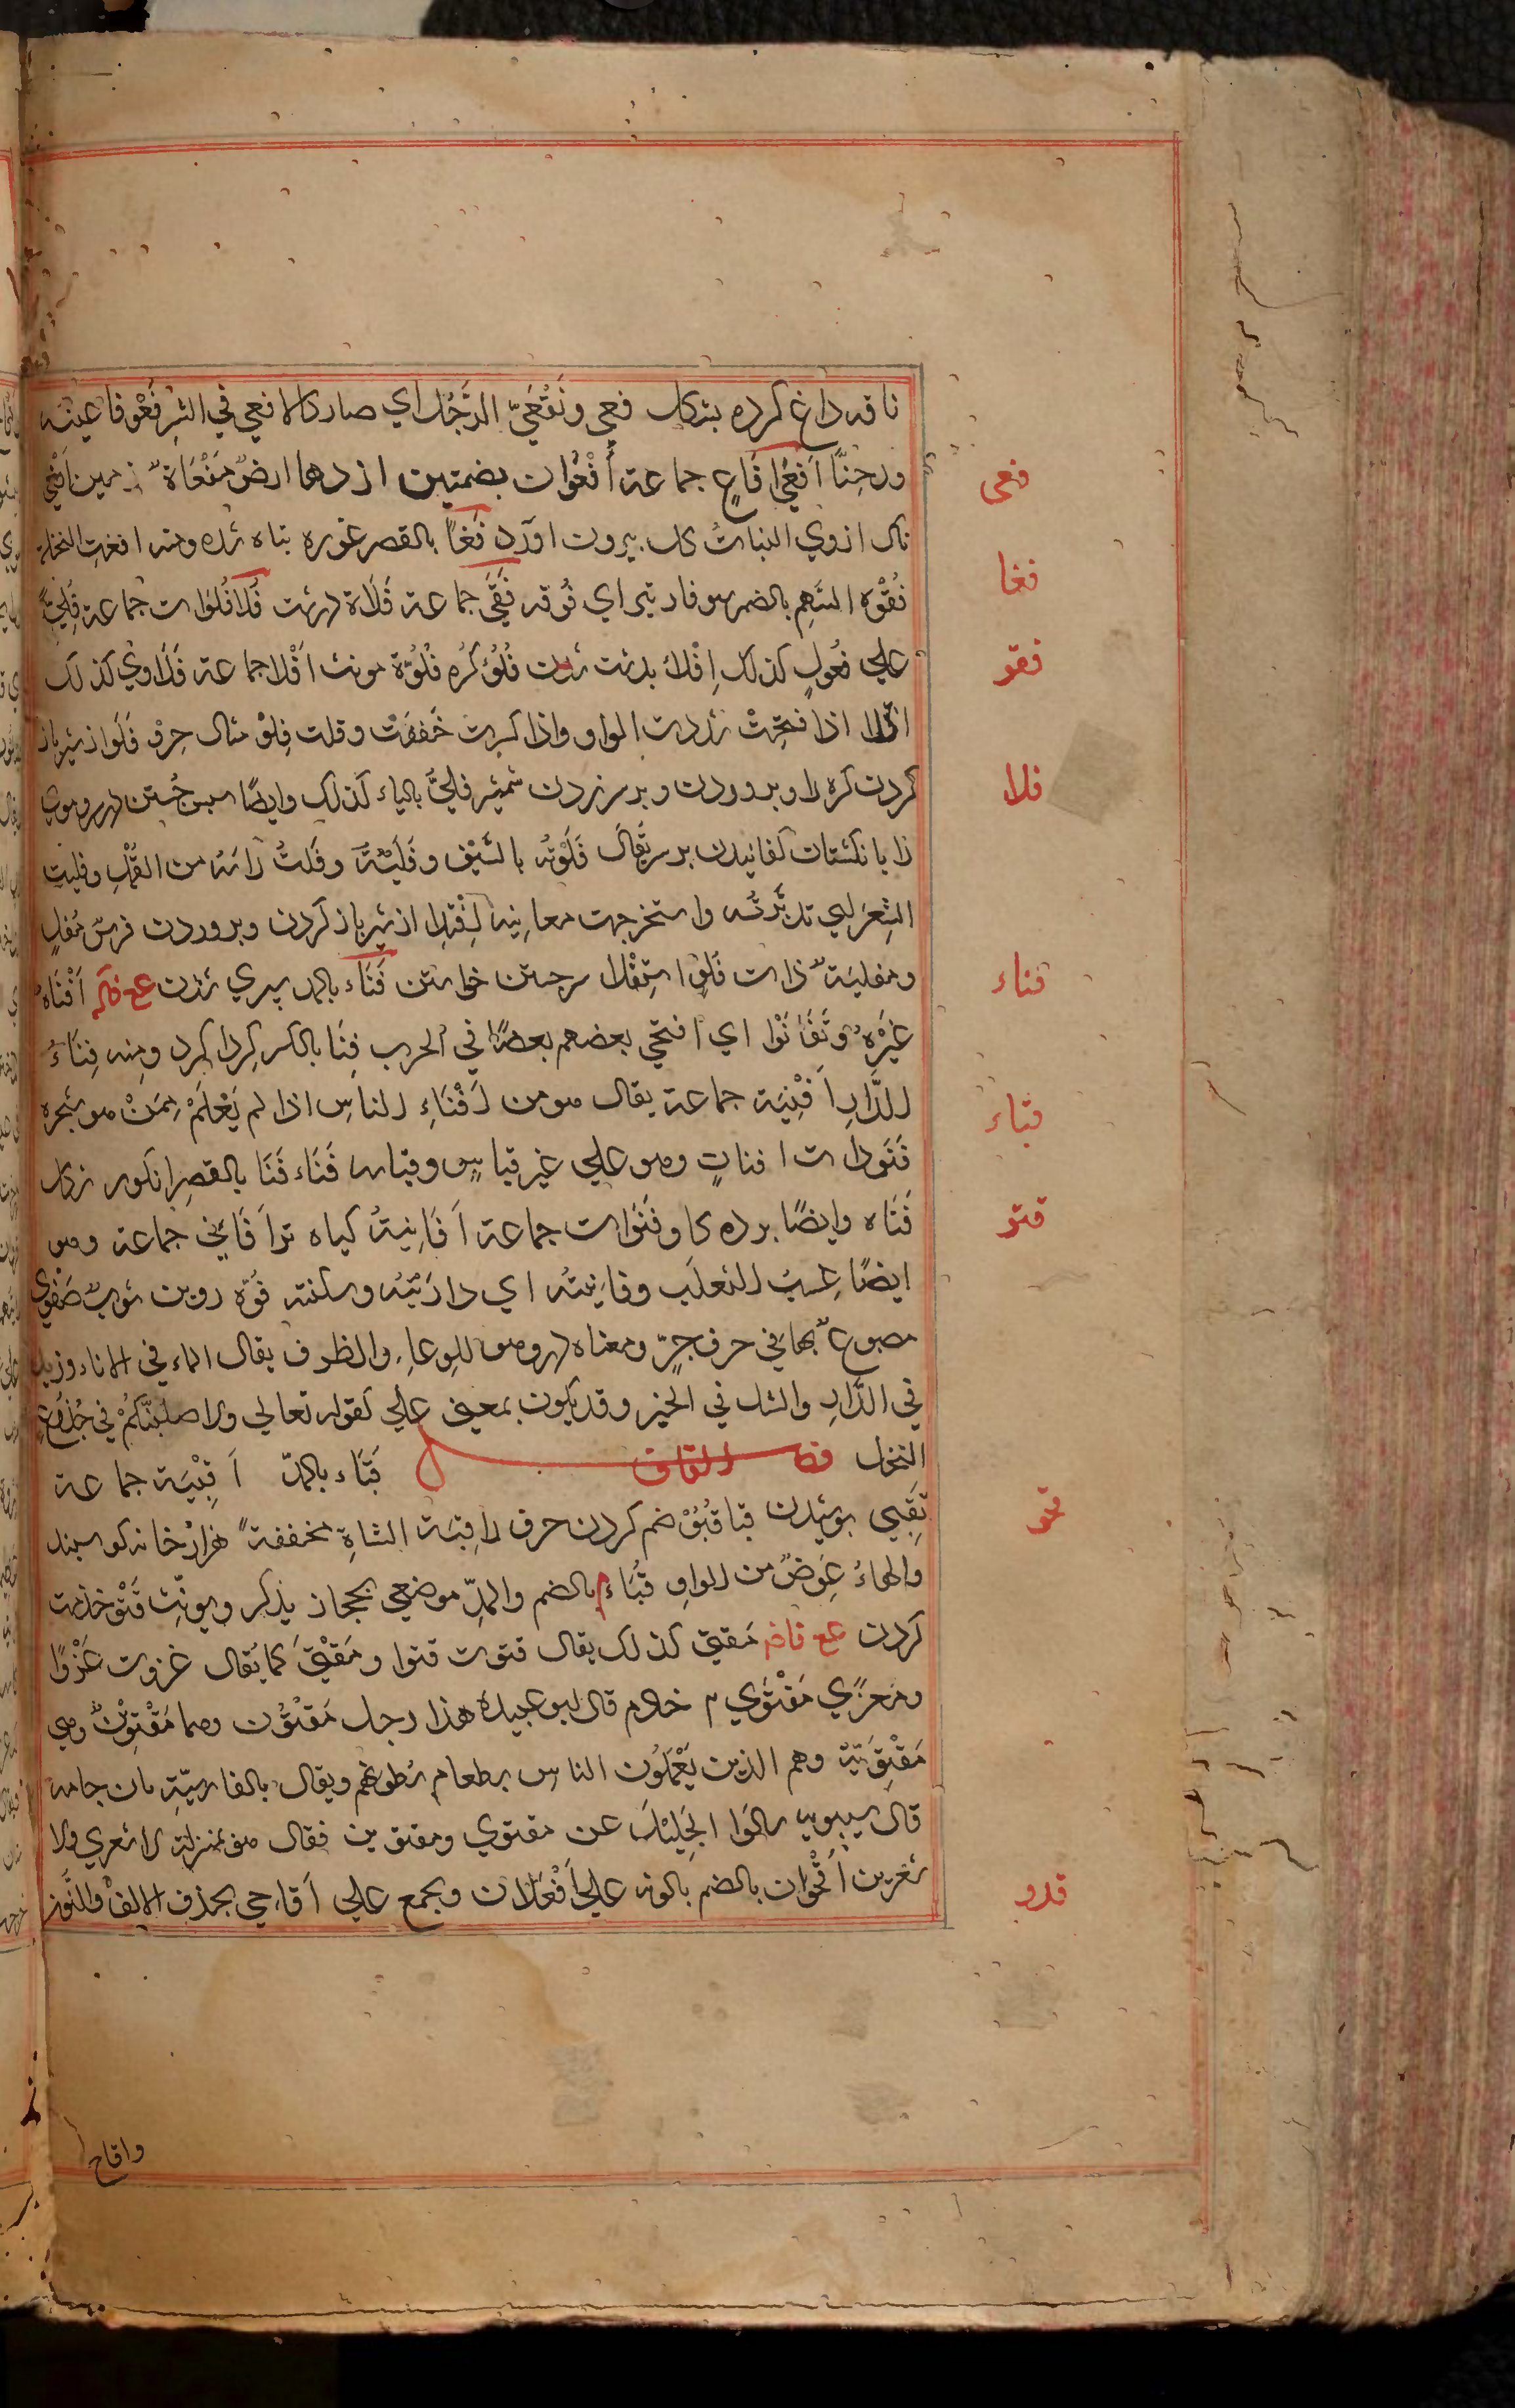 ناقه داغ كرده بشكل فعي وتَفَعَّيّ الرَّجُل اي صار كالافعي في الشر فَغْو فاغيته
فعى
ورحِنَّا اَفغْيَ فَاغٍ جماعة اُفْعُوَان بضمتين اژدها ارضٌ مَفْعَاةٌ زمين افعي
ناك افغوي النبات كل بيرون اورد فَغَا بالقصر غوره تباه شده ومنه افغتِ النخلة
فغا
فُقْوَه السَّهِم بالضم سوفار تير اي فُوقه فُقَيً جماعة فَلَاة دشت فَلَا فَلَوات جماعة فُلِيٌّ
علي فُعُولٍ كذلك اِفْلَاءٌ بدشت شدن فُلُوٌّ كُرَّه فَلُوَّة مونث اَفْلَا جماعة فَلَاوي كذلك
فقو
اذا فتحْتَ شددت الواو واذا كسرت خَففَتْ وقلت فِلْوٌ مثال جِرْوٌ فَلَو از شير باز
كردن كره را وپروردن وبر سر زدن شمشير فليٌ بالياء كذلك وايضًا سپس جُستن در سر وموي
فلا
را بانكشتان كفانيدن بر سر يُقَال فَلَوْتُه بالسَّيْف وفَلَيْتُهٗ وفَلَيتُ راسَهُ من القَمْل وفليت
الشِعرَ اي تدبَّرتُه واستخرجت معانيه اِفْتِلا از شير باز كردن وپروردن فرسٌ مُفلٍ
ومفليَةٌ ذات فَلْوٍ استفْلا سر جستن خواستن فَنَاء بالمد سپري شدن اَفْنَاهُ
فناء
غيْرُهٗ وتَفَانَوْا اي افنَي بعضهم بعضًا في الحرب فِنَا بالكسر كِردا كرد ومنه فِنَاءُ
الدَّارِ اَفْنِيَة جماعة يقال هو من اَفْنَاءِ الناسِ اذا لم يَعْلَمْ مِمَنْ هو شجرة
قباء
فَنَوا ذات افنانٍ وهو علي غير قياسٍ وقياسه فَنَاء فَنَا بالقصر انكور
فَنَاه وايضًا برده كاو فَنَوات جماعة اَفَانِيةُ كياه تر اَفَاني جماعة وهو
قتو
ايضًا عِنبُ الثعلَب وفانيتُه اي داريْتُه وسكنته فُوّه روين ثوبٌ مَفْوّي
مصبوغٌ بها في حرف جرٍّ ومعناه در وهو للوِعاءِ والظرف يقال الماء في الاناء وزيد
في الدَّارِ والشك في الخبر وقد يكون بمعني علي كقوله تعالي ولاصلبَنَّكُمْ في جُذُوْعِ
النخل فصل القاف قَبَاء بالمدّ اَقبِيَة جماعة
تَقَبي پوشيدن قبا قَبْوٌ ضم كردن حرف را قِبَة الشاةِ مخففةً هزار خانه كوسپند
قحو
والهاءُ عِوَضٌ من الواوِ قُبَاء بالضم والمدِّ موضعي بحجاز يذكر ويونّث قَتْو خذمت
كردن مَقتيً كذلك يقال قتوت قتوا ومَقْتيً كما يُقال غزوت غَزْوًا
ومَغزيً مَقْتَوي خادم قال ابو عبيده هذا رجل مَقْتَوُن وهما مَقْتَوِيْنٌ وهي
مَقْتَوِيَّة وهم الذين يَعْمَلُون الناس بطعام بُطونهم ويقال بالفارسيّةِ نان جامه
قال سيبويه سالوا الخَليلَ عن مقتوي ومقتوين فقال هو بمنزلة الاشعري والا
شعرين اُقْحُوان بالضم بابونه علي اُفْعَلان ويجمع علي اَقَاحي بحذف الالف والنون
قدو
واقاح